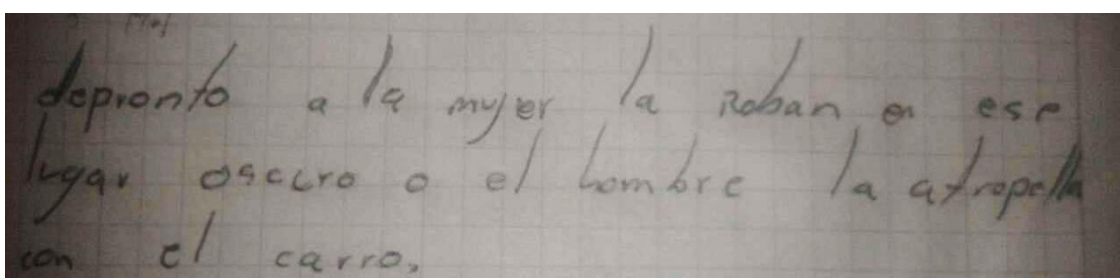 depronto a la mujer la Roban en ese
lugar oscuro o el hombre la atropella
con el carro.